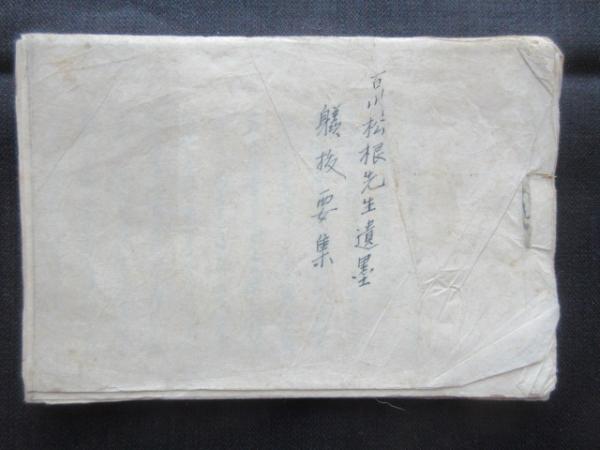 百川松根先生遺墨
驥抜要集